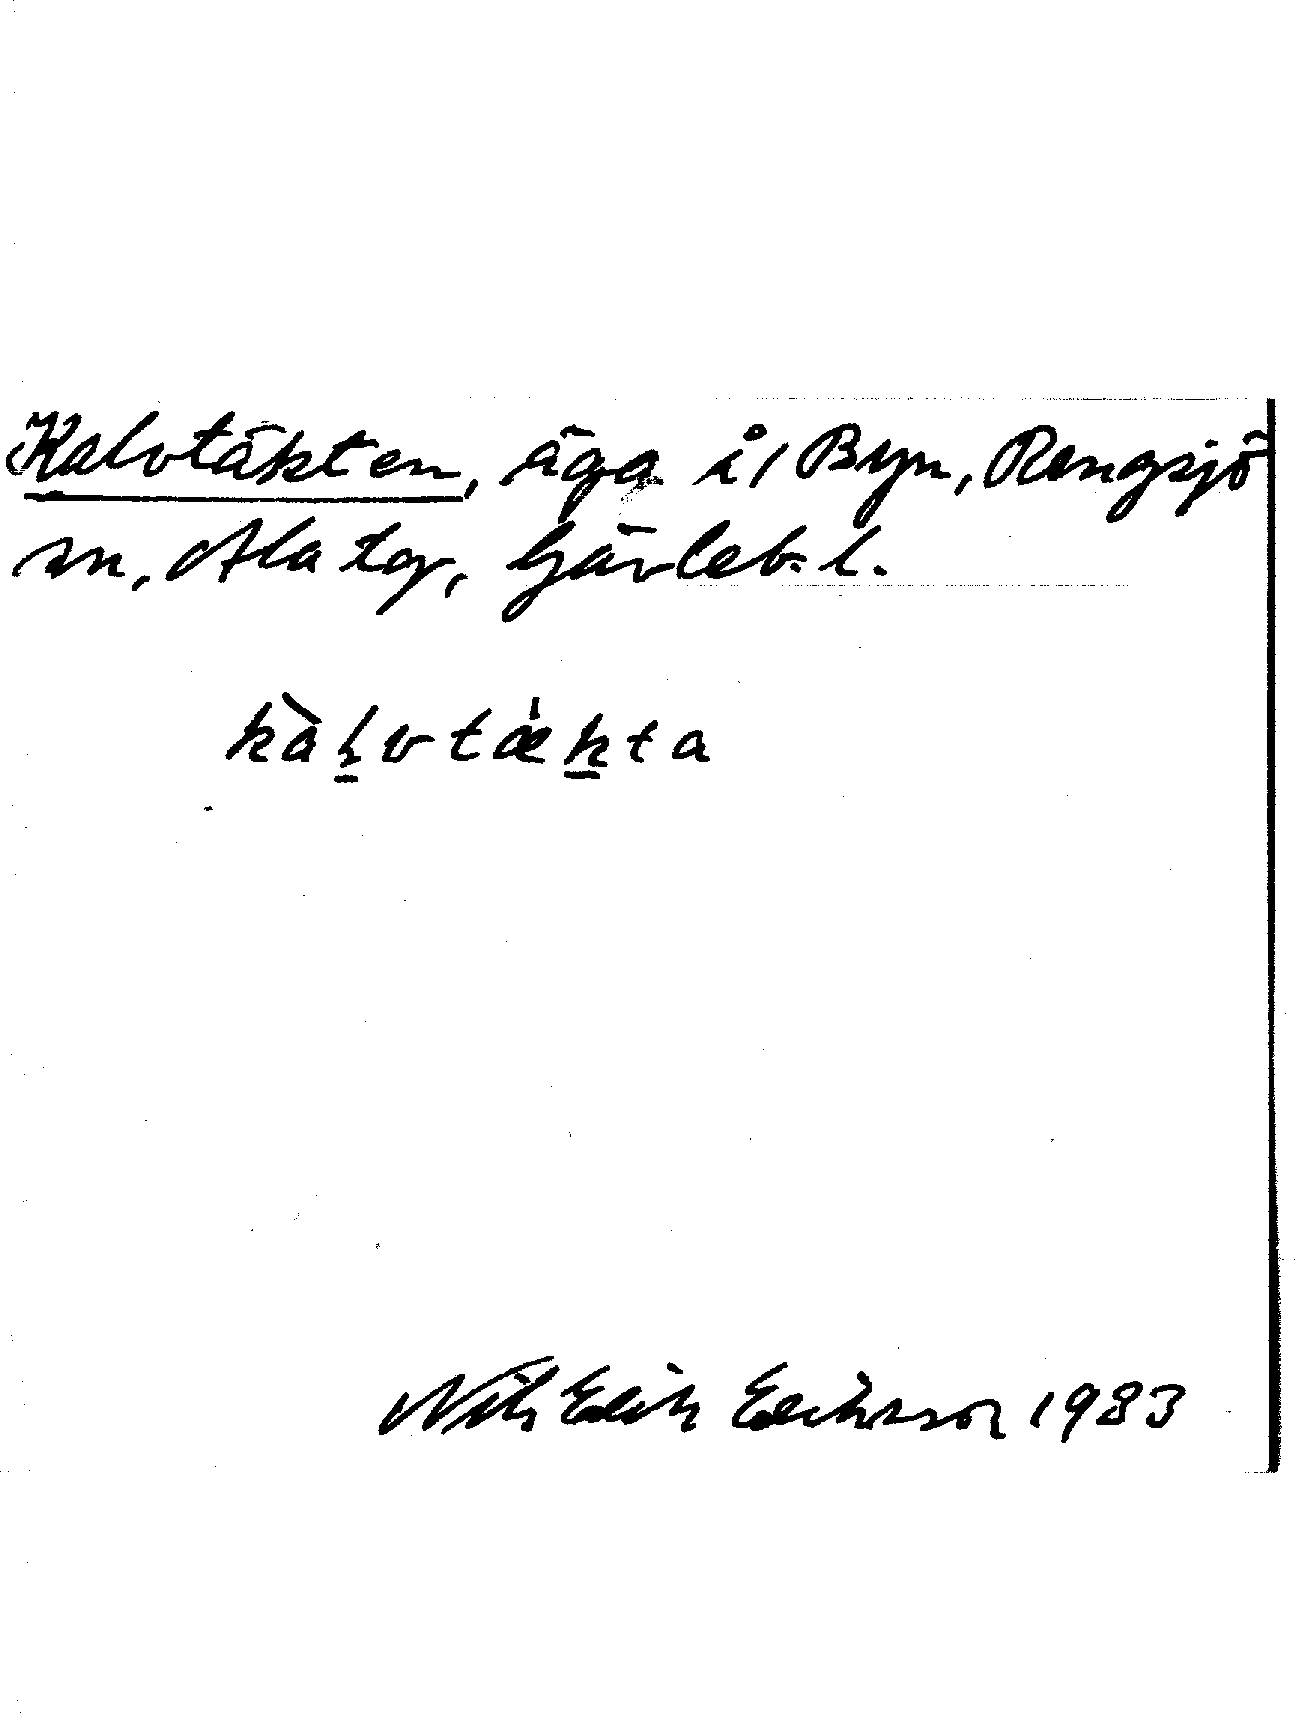 Kalvtäkten, äga i 1 Byn, Rengsjö
sn, Ala tg, Gävleb. l.
kàl̠vtæ̍k̠ta
Nils Erik Eriksson 1983